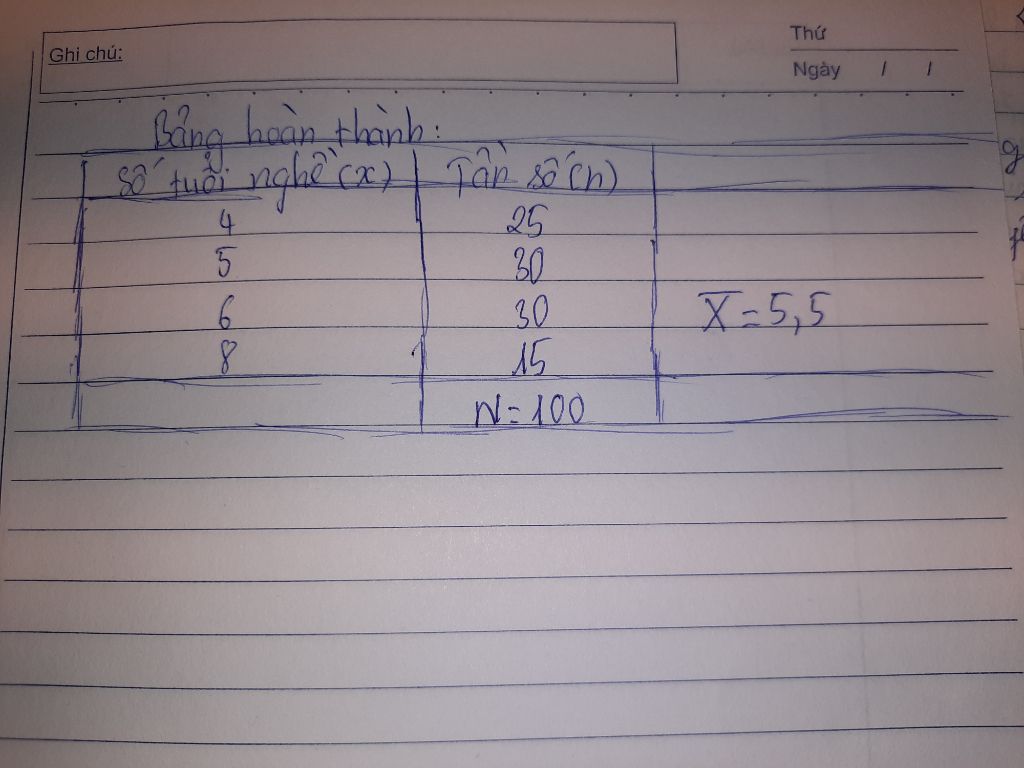 Ghi chú:
Thứ
Ngày / /
Bảng hoàn thành:
Số tuổi nghề (x) Tần số (n)
4 25
5 30
6 30
X̅ = 5,5
8 15
N = 100
g